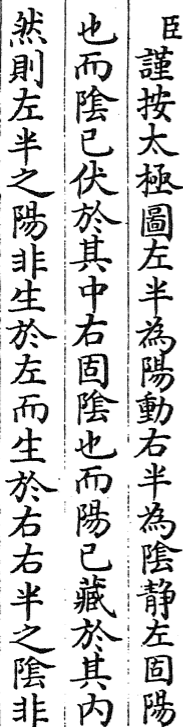 臣謹按太極圖左半為陽動右半為陰静左固陽
也而陰已伏於其中右固陰也而陽已藏於其内
然則左半之陽非生於左而生於右右半之陰非